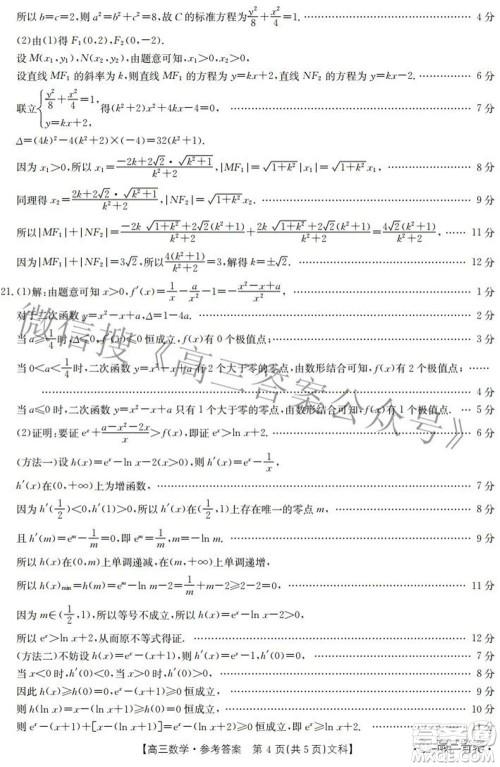 所以 b=c=2,则 a²=b²+c²=8,故 C 的标准方程为 y²/8+x²/4=1. 4 分
(2)由(1)得 F₁(0,2),F₂(0,-2).
设 M(x₁,y₁),N(x₂,y₂),由题意可知,x₁>0,x₂>0,
设直线 MF₁ 的斜率为 k,则直线 MF₁ 的方程为 y=kx+2,直线 NF₂ 的方程为 y=kx-2. 6 分
联立{y²/8+x²/4=1, y=kx+2, 得(k²+2)x²+4kx-4=0, 7 分
Δ=(4k)²-4(k²+2)×(-4)=32(k²+1).
因为 x₁>0,所以 x₁=(-2k+2√2·√(k²+1))/(k²+2),|MF₁|=√(1+k²)|x₁|=√(1+k²)x₁, 8 分
同理得 x₂=(2k+2√2·√(k²+1))/(k²+2),|NF₂|=√(1+k²)x₂, 9 分
所以|MF₁|+|NF₂|=(-2k√(1+k²)+2√2(k²+1))/(k²+2)+(2k√(1+k²)+2√2(k²+1))/(k²+2)=4√2(k²+1)/(k²+2), 11 分
因为|MF₁|+|NF₂|=3√2,所以4(k²+1)/(k²+2)=3,解得 k=±√2. 12 分
21.(1)解:由题意可知 x>0,f′(x)=1/x-a/x²-1=-(x²-x+a)/x², 1 分
对于二次函数 y=x²-x+a,Δ=1-4a. 2 分
当 a≥1/4时,Δ≤0,f′(x)≤0 恒成立,f(x)有 0 个极值点; 3 分
当 0<a<1/4时,二次函数 y=x²-x+a 有 2 个大于零的零点,由数形结合可知,f(x)有 2 个极值点;
4 分
当 a≤0 时,二次函数 y=x²-x+a 只有 1 个大于零的零点,由数形结合可知,f(x)有 1 个极值点. 5 分
(2)证明:要证 eˣ+(a-x²-2x)/x>f(x),即证 eˣ>ln x+2. 6 分
(方法一)设 h(x)=eˣ-ln x-2(x>0),则 h′(x)=eˣ-1/x,
h′(x)在(0,+∞)上为增函数, 7 分
因为 h′(1/2)<0,h′(1)>0,所以 h′(x)在(1/2,1)上存在唯一的零点 m, 8 分
且 h′(m)=eᵐ-1/m=0,即 eᵐ=1/m. 9 分
所以 h(x)在(0,m)上单调递减,在(m,+∞)上单调递增,
所以 h(x)min=h(m)=eᵐ-ln m-2=1/m+m-2≥2-2=0, 11 分
因为 m∈(1/2,1),所以等号不成立,所以 eˣ-ln x-2>0,
所以 eˣ>ln x+2,从而原不等式得证. 12 分
(方法二)不妨设 h(x)=eˣ-(x+1),则 h′(x)=eˣ-1,h′(0)=0, 7 分
当 x<0 时,h′(x)<0,当 x>0 时,h′(x)>0, 8 分
因此 h(x)≥h(0)=0,eˣ-(x+1)≥0 恒成立, 9 分
则 eˣ-(x+1)≥0 恒成立, 10 分
则 eˣ-(x+1)+[x-(ln x+1)]≥0,即 eˣ-(ln x+2)≥0 恒成立,
【高三数学·参考答案 第 4 页(共 5 页)文科】
微信搜《高三答案公众号》